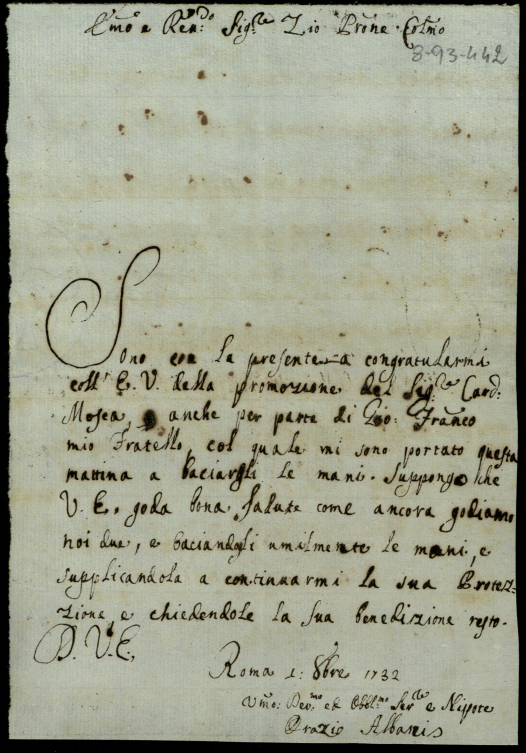 Emo e Ren:do Sig:re Zio Prõne Colmo
8-93-442
Sono con la presente a congratularmi
coll' E. V. della promozione del Sig:re Card:
Mosca, anche per parte di Gio: Franco
mio Fratello, col quale mi sono portato questa
mattina a baciargli le mani. Suppongo che
V. E. goda bona salute come ancora godiamo
noi due, e baciandogli umilmente le mani, e
supplicandola a continuarmi la sua Protez-
zione, e chiedendole la sua benedizione resto.
D. V. E.
Roma 1: 8bre 1732
Umo: Devmo et Obblmo Serre e Nipote
Orazio Albani